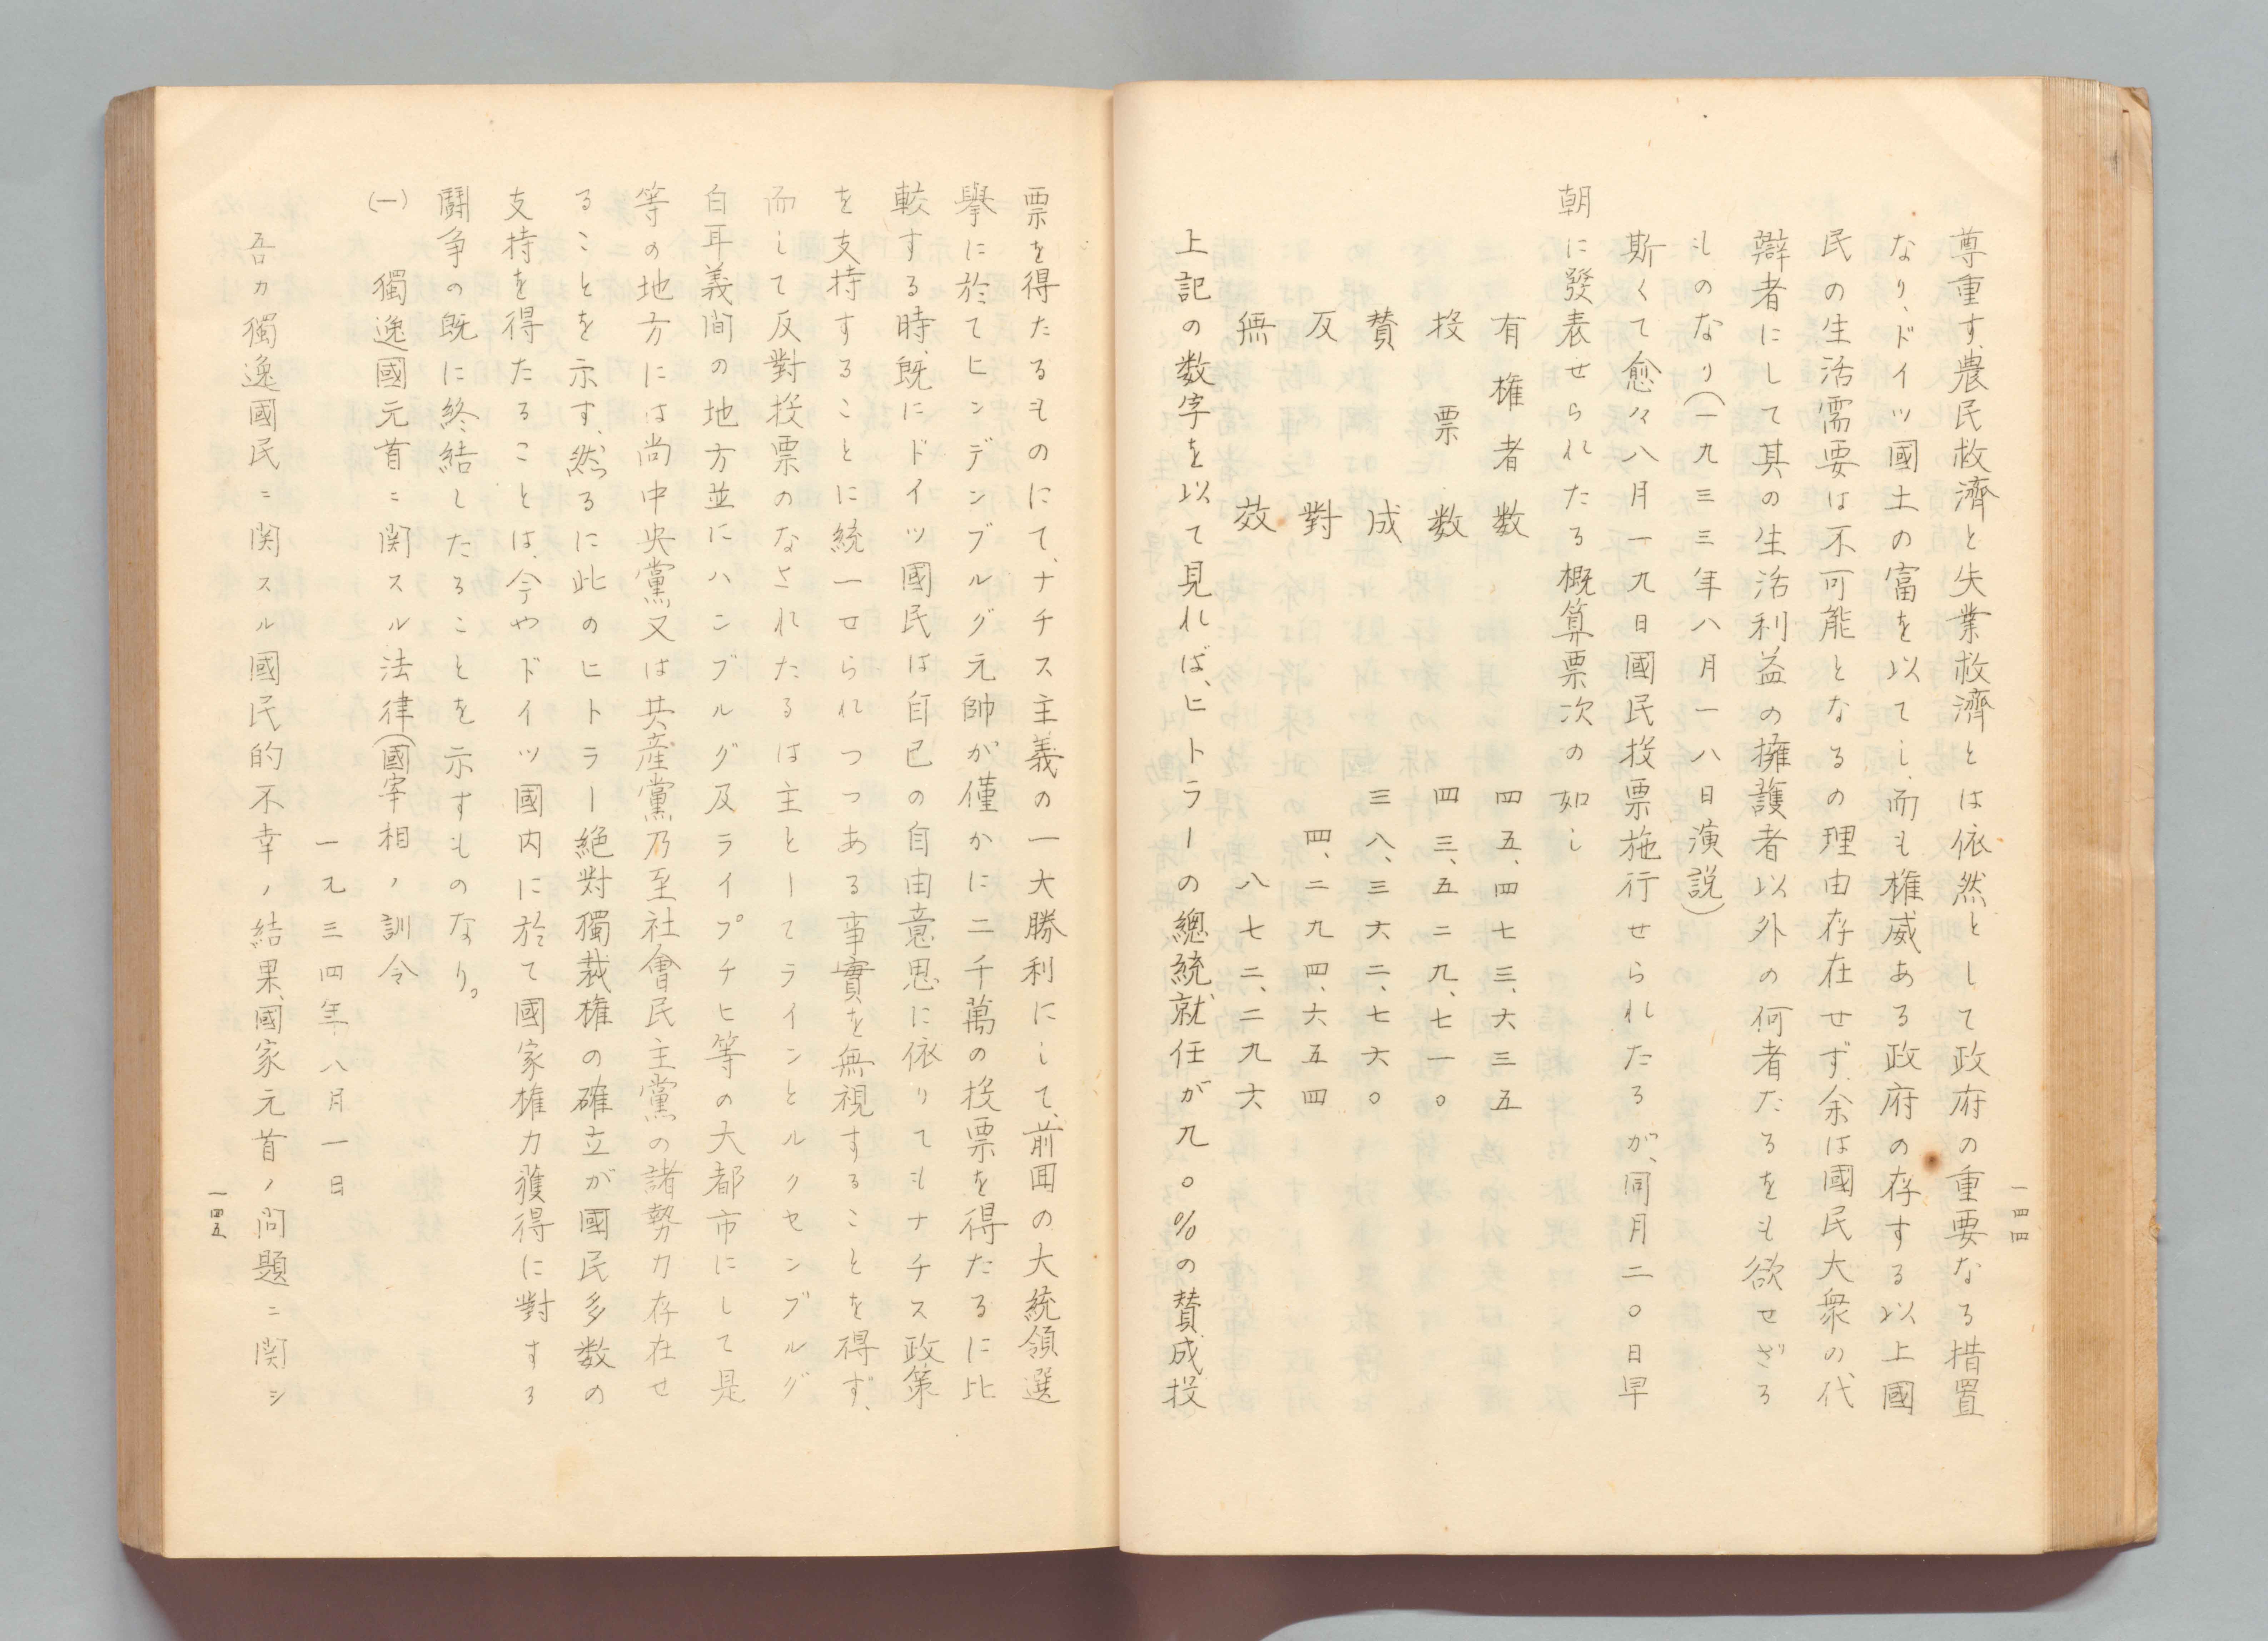 一四四
尊重す、農民救濟と失業救濟とは依然として政府の重要なる措置
なり、ドイツ國土の富を以てし、而も権威ある政府の存する以上國
民の生活需要は不可能となるの理由存在せず、余は國民大衆の代
辯者にして其の生活利益の擁護者以外の何者たるをも欲せざる
ものなり(一九三三年八月一八日演説)
斯くて愈々八月一九日國民投票施行せられたるが、同月二〇日早
朝に發表せられたる概算票次の如し
有権者数 四五、四七三、六三五
投票数 四三、五二九、七一〇
賛成 三八、三六二、七六〇
反對 四、二九四、六五四
無效 八七二、二九六
上記の数字を以て見れば、ヒトラーの總統就任が九〇%の賛成投
票を得たるものにて、ナチス主義の一大勝利にして、前囬の大統領選
擧に於てヒンデンブルグ元帥が僅かに二千萬の投票を得たるに比
較する時、既にドイツ國民は自已の自由意思に依りてもナチス政策
を支持することに統一せられつつある事實を無視することを得ず、
而して反對投票のなされたるは主としてラインとルクセンブルグ
白耳義間の地方並にハンブルグ及ライプチヒ等の大都市にして是
等の地方には尚中央黨又は共産黨乃至社會民主黨の諸勢力存在せ
ることを示す、然るに此のヒトラー絶對獨裁権の確立が國民多数の
支持を得たることは、今やドイツ國内に於て國家権力獲得に對する
鬪争の既に終結したることを示すものなり。
(一) 獨逸國元首ニ関スル法律(國宰相ノ訓令
一九三四年八月一日
吾カ獨逸國民ニ関スル國民的不幸ノ結果、國家元首ノ問題ニ関シ
一四五